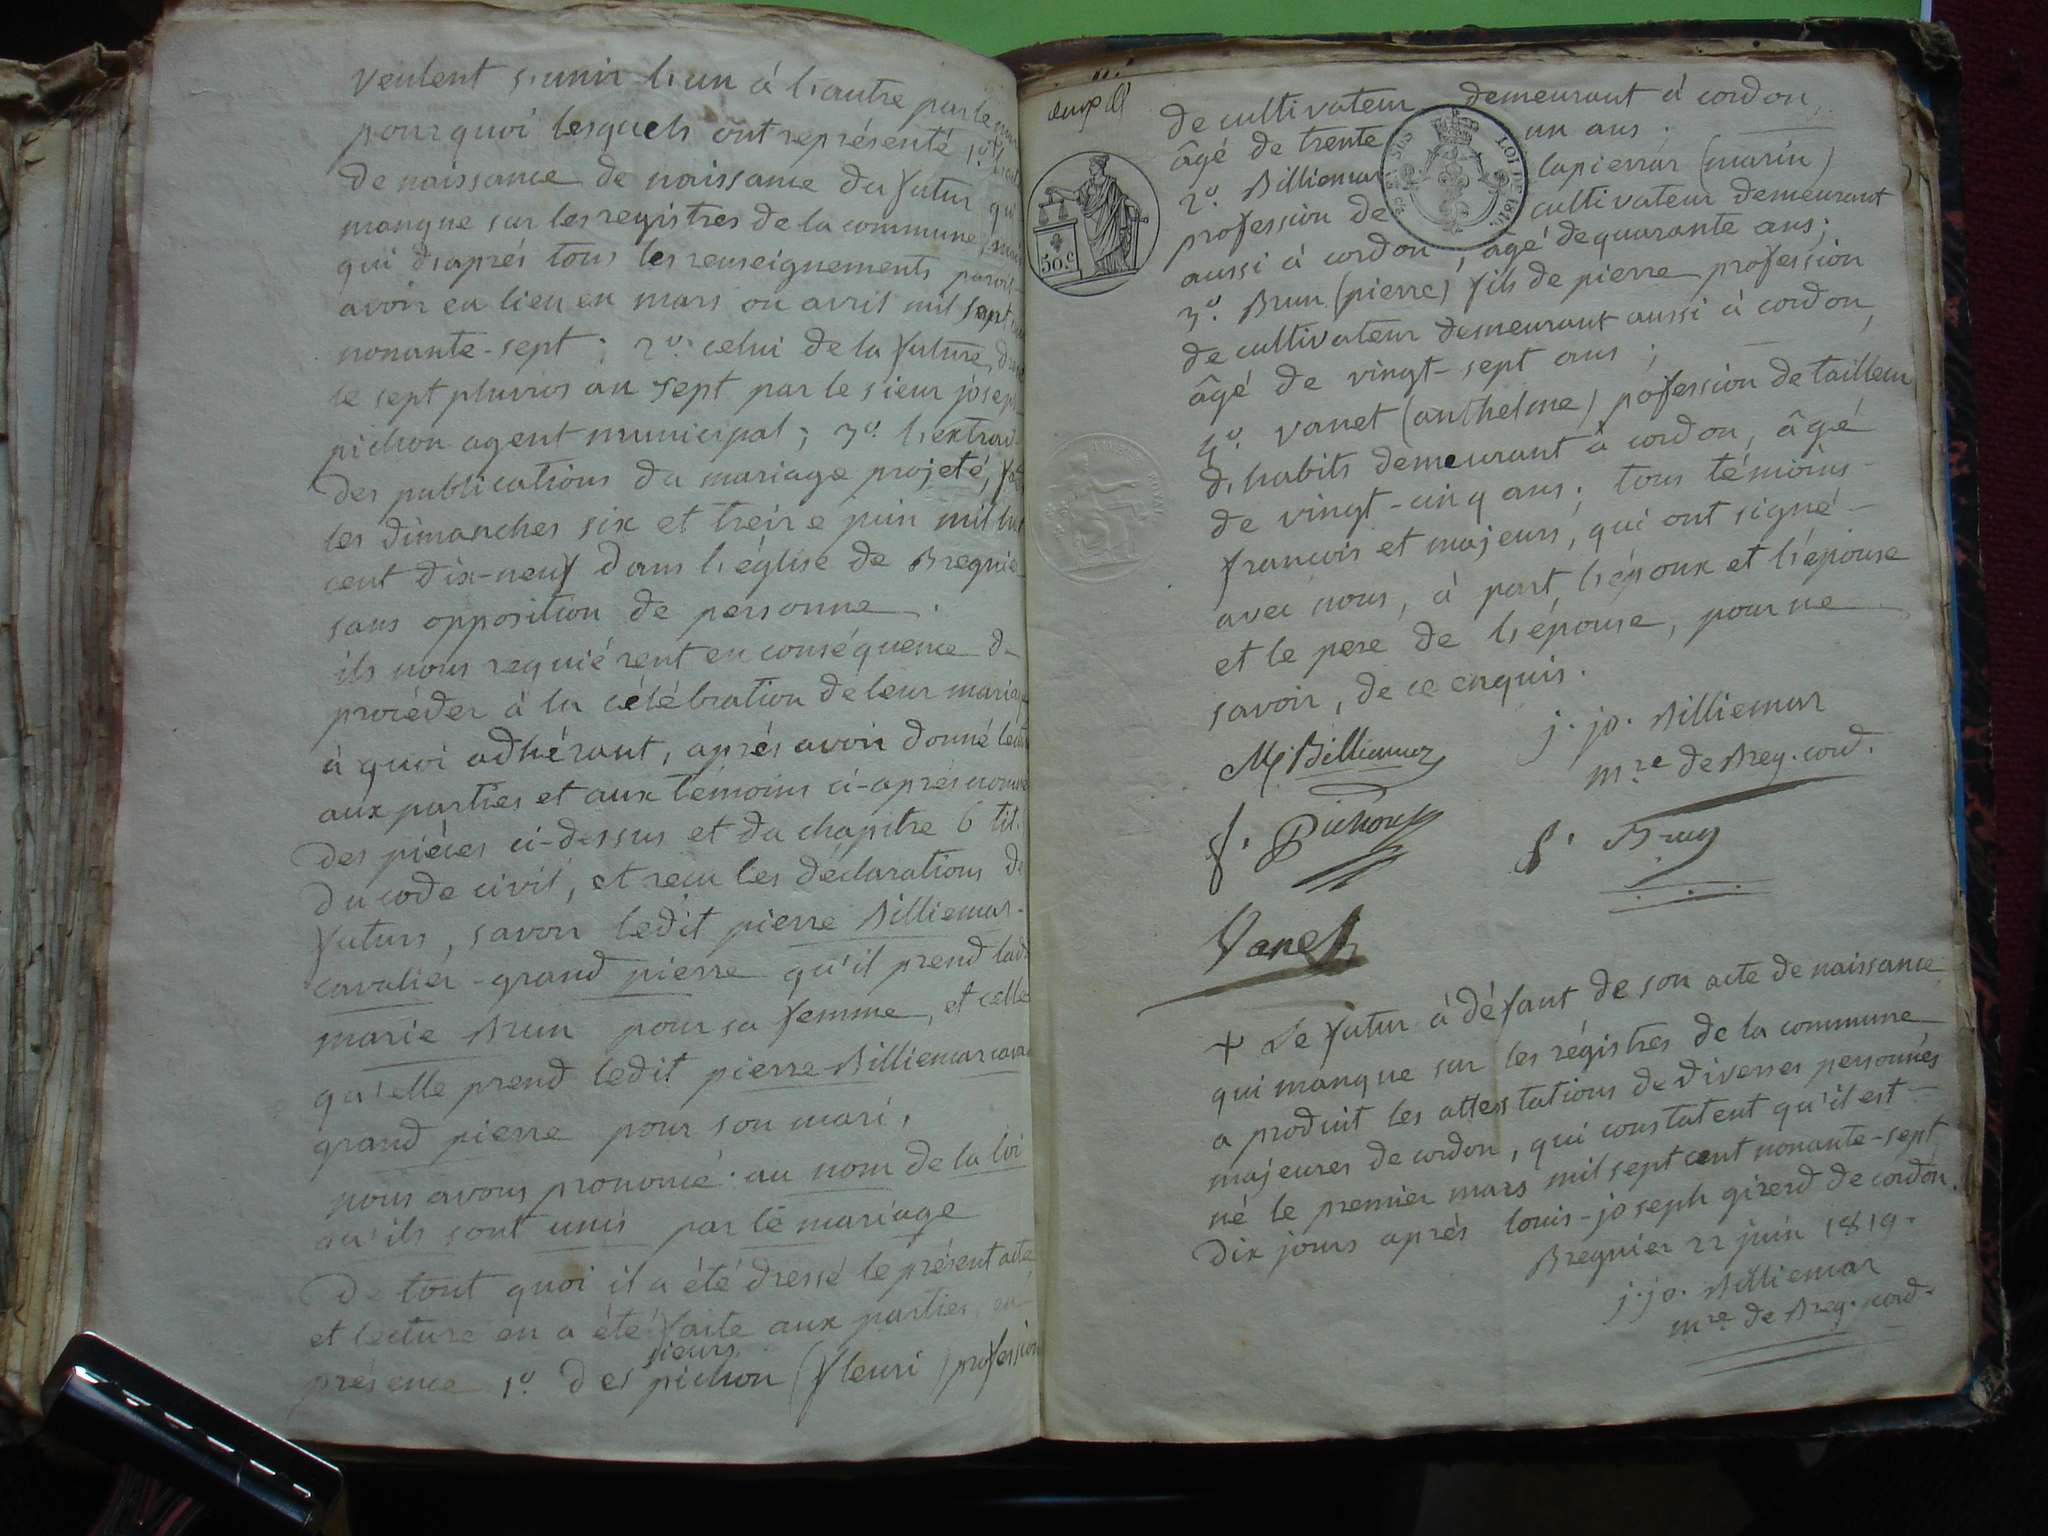 veulent s'unir l'un à l'autre par le
pourquoi lesquels ont représenté 1.º
de naissance de naissance du futur qui
manque sur les registres de la commune, mais
qui d'aprés tous les renseignements paroit
avoir eu lieu en mars ou avril mil sept
nonante-sept ; 2.º celui de la future,
le sept pluvios an sept par le sieur joseph
pichon agent municipal ; 3.º l'extrait
des publications du mariage projeté,
les dimanches six et treize juin mil huit
cent dix-neuf dans l'église de Bregnier
sans opposition de personne.
ils nous requiérent en conséquence de
procéder à la célébration de leur mariage
à quoi adhérant, aprés avoir donné lecture
aux parties et aux témoins ci-aprés nommés
des piéces ci-dessus et du chapitre 6 tit.
du code civil, et recu les déclarations des
futurs, savoir ledit pierre Billiemar-
cavalier-grand pierre qu'il prend ladite
marie Brun pour sa femme, et celle
qu'elle prend ledit pierre Billiemar
grand pierre pour son mari,
nous avons prononcé au nom de la loi
qu'ils sont unis par le mariage
De tout quoi il a été dressé le présent acte
et lecture en a été faite aux parties, en
sieurs
présence 1.º des pichon (fleuri) profession
de cultivateur demeurant à cordon,
âgé de trente un ans ;
2.º Billiemar lapierrar (marin)
profession de cultivateur demeurant
aussi à cordon, âgé de quarante ans ;
3.º Brun (pierre) fils de pierre profession
de cultivateur demeurant aussi à cordon,
âgé de vingt-sept ans ;
4.º vanet (anthelme) pofession de tailleur
d'habits demeurant à cordon, âgé
de vingt-cinq ans ; tous témoins
francois et majeurs, qui ont signé
avec nous, à part l'époux et l'épouse
et le pere de l'épouse, pour ne
savoir, de ce enquis.
50.c
LOI DE
M Billiemar
j. jo. Billiemar
m.re de Breg. cord.
f. Pichon
p. Brun
Vanet
+ Le futur à défaut de son acte de naissance
qui manque sur les régistres de la commune
a produit les attestations de diverses personnes
majeures de cordon, qui constatent qu'il est
né le premier mars mil sept cent nonante-sept
dix jours aprés louis-joseph girerd de cordon.
Bregnier 22 juin 1819.
j. jo. Billiemar
m.re de Breg. cord.